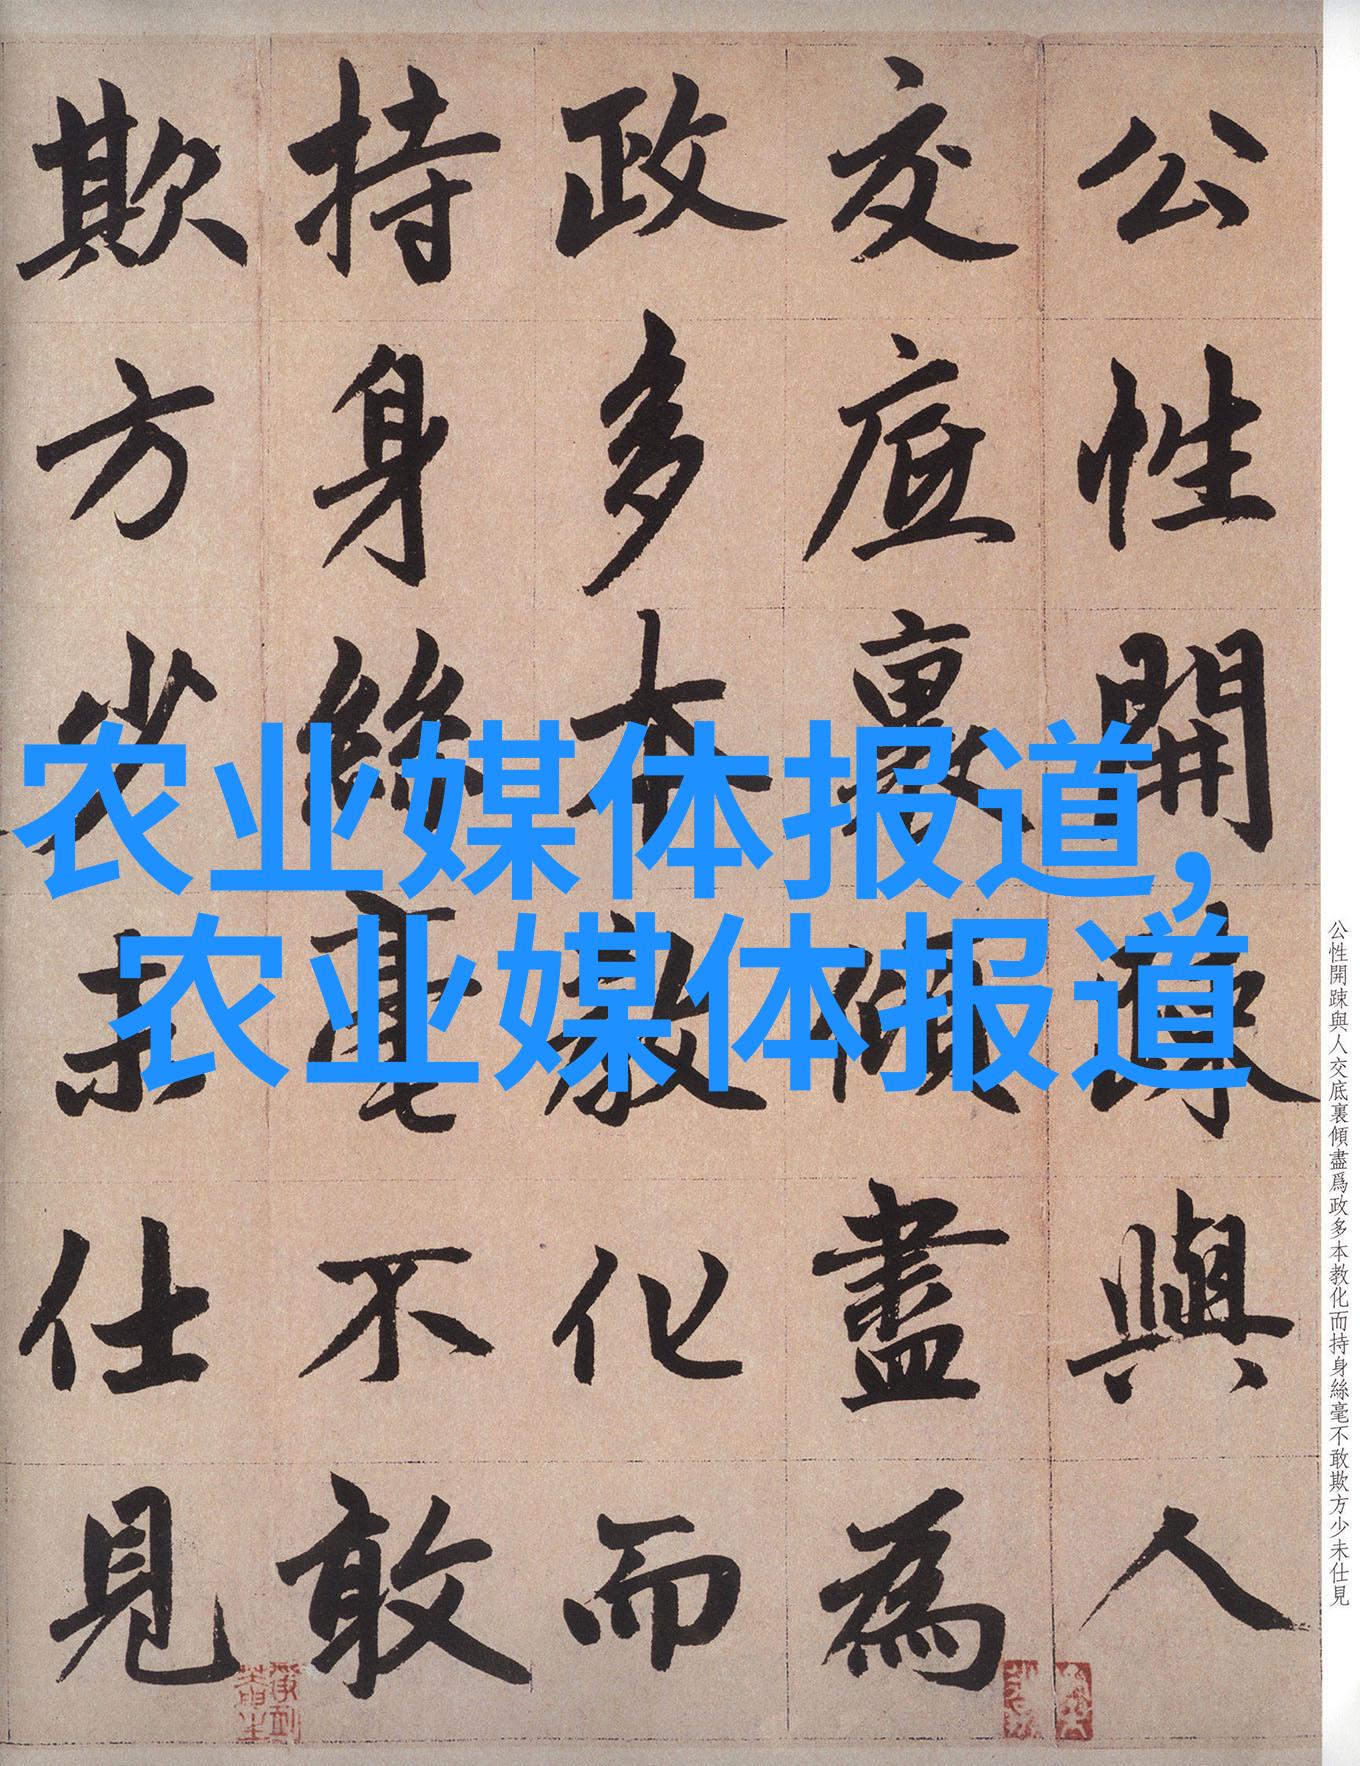 公性開疎與人
交底裏傾盡為
政多本教化而
持身絲毫不敢
欺方少未仕見
农业媒体报道,
农业媒体报道
公性開踈與人交底裏傾盡爲政多本教化而持身絲毫不敢欺方少未仕見